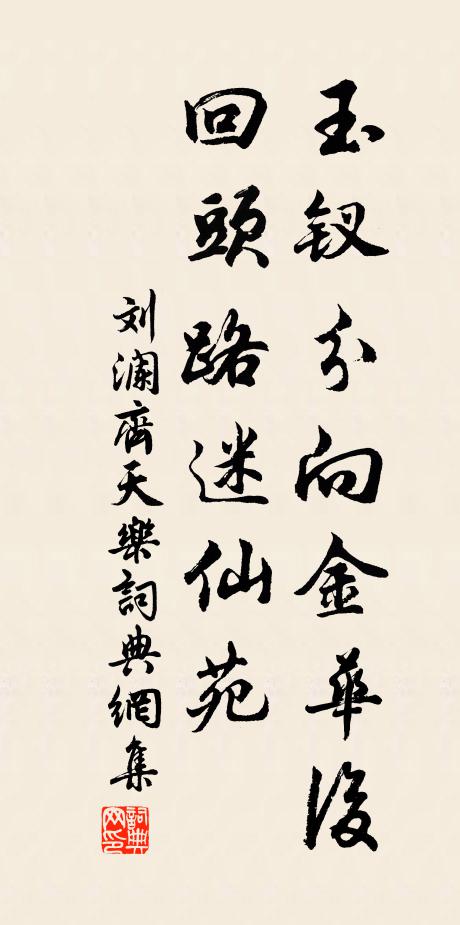 玉钗分向金華後
回頭路迷仙苑
刘澜齊天樂詞典網集
詞典網印